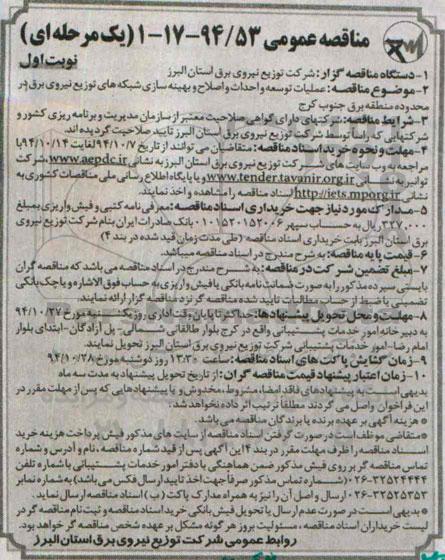 مناقصه عمومی ۹۴/۵۳-۱۷-۱ (یک مرحله ای)
نوبت اول
۱-دستگاه مناقصه گزار: شرکت توزیع نیروی برق استان البرز
۲-موضوع مناقصه: عملیات توسعه و احداث و اصلاح و بهینه سازی شبکه های توزیع نیروی برق در
محدوده منطقه برق جنوب کرج
۳- شرایط مناقصه: شرکتهای دارای گواهی صلاحیت معتبر از سازمان مدیریت و برنامه ریزی کشور و
شرکتهایی که راساً توسط شرکت توزیع نیروی برق استان البرز تایید صلاحیت گردیده اند.
۴- مهلت و نحوه خرید اسناد مناقصه: متقاضیان می توانند از تاریخ ۹۴/۱۰/۷ لغایت ۹۴/۱۰/۱۴ با
مراجعه به وب سایت های شرکت توزیع نیروی برق استان البرز به نشانی www.aepdc.ir، شرکت
توانیر به نشانی www.tender.tavanir.org.ir و یا پایگاه اطلاع رسانی ملی مناقصات کشوری به
نشانی http://iets.mporg.ir اسناد مناقصه را مشاهده و اخذ نمایند.
۵- مدارک مورد نیاز جهت خریداری اسناد مناقصه: معرفی نامه کتبی و فیش واریزی بمبلغ
۳۲۷,۰۰۰ ریال به حساب سپهر ۰۱۰۱۵۳۰۱۵۲۰۰۶ بانک صادرات ایران بنام شرکت توزیع نیروی
برق استان البرز بابت خریداری اسناد مناقصه (طی مدت زمان قید شده در بند ۴)
۶- قیمت پایه مناقصه: به شرح مندرج در اسناد مناقصه میباشد.
۷- مبلغ تضمین شرکت در مناقصه: به شرح مندرج در اسناد مناقصه می باشد که مناقصه گران
بایستی سپرده مذکور را به صورت ضمانت نامه بانکی یا فیش واریزی به حساب فوق الاشاره و یا چک بانکی
تضمینی یا ضبط از حساب مطالبات تایید شده مناقصه گر نزد مناقصه گزار ارائه نمایند.
۸- مهلت و محل تحویل پیشنهادها: حداکثر تا پایان وقت اداری روز یکشنبه مورخ ۹۴/۱۰/۲۷
به دبیرخانه امور خدمات پشتیبانی واقع در کرج بلوار طالقانی شمالی- پل آزادگان-ابتدای بلوار
امام رضا-امور خدمات پشتیبانی شرکت توزیع نیروی برق استان البرز تحویل نمایند.
۹- زمان گشایش پاکت های اسناد مناقصه: ساعت ۱۳:۳۰ روز دوشنبه مورخ ۹۴/۱۰/۲۸
۱۰- زمان اعتبار پیشنهاد قیمت مناقصه گران: از تاریخ تحویل پیشنهاد به مدت سه ماه
بدیهی است به پیشنهادهای فاقد امضا، مشروط، مخدوش و یا پیشنهادهایی که پس از مهلت مقرر در
این فراخوان واصل می گردند مطلقاً ترتیب اثر داده نخواهد شد.
* هزینه آگهی بر عهده برنده یا برندگان مناقصه می باشد.
* متقاضی موظف است در صورت گرفتن اسناد مناقصه از سایت های مذکور فیش پرداخت هزینه خرید
اسناد مناقصه را ظرف مهلت مقرر در بند ۴ این آگهی پس از قید شماره مناقصه، نام و آدرس و شماره
تماس مناقصه گر بر روی فیش مذکور ضمن هماهنگی با دفتر امور خدمات پشتیبانی با شماره تلفن
۰۲۶-۳۲۵۲۴۴۴۴ (شماره تماس مذکور صرفاً جهت اخذ تایید ارسال فکس می باشد) به شماره نمابر
۰۲۶-۳۲۵۲۵۳۵۳ ارسال و اصل آن را نیز به همراه مدارک پاکت (ب) اسناد مناقصه ارسال نماید.
* بدیهی است در صورت عدم ارسال یا تحویل فیش بانکی خرید اسناد مناقصه و ثبت نام مناقصه گر در
لیست خریداران اسناد مناقصه، مسئولیت بروز هر گونه مشکل بر عهده شخص مناقصه گر خواهد بود.
روابط عمومی شرکت توزیع نیروی برق استان البرز